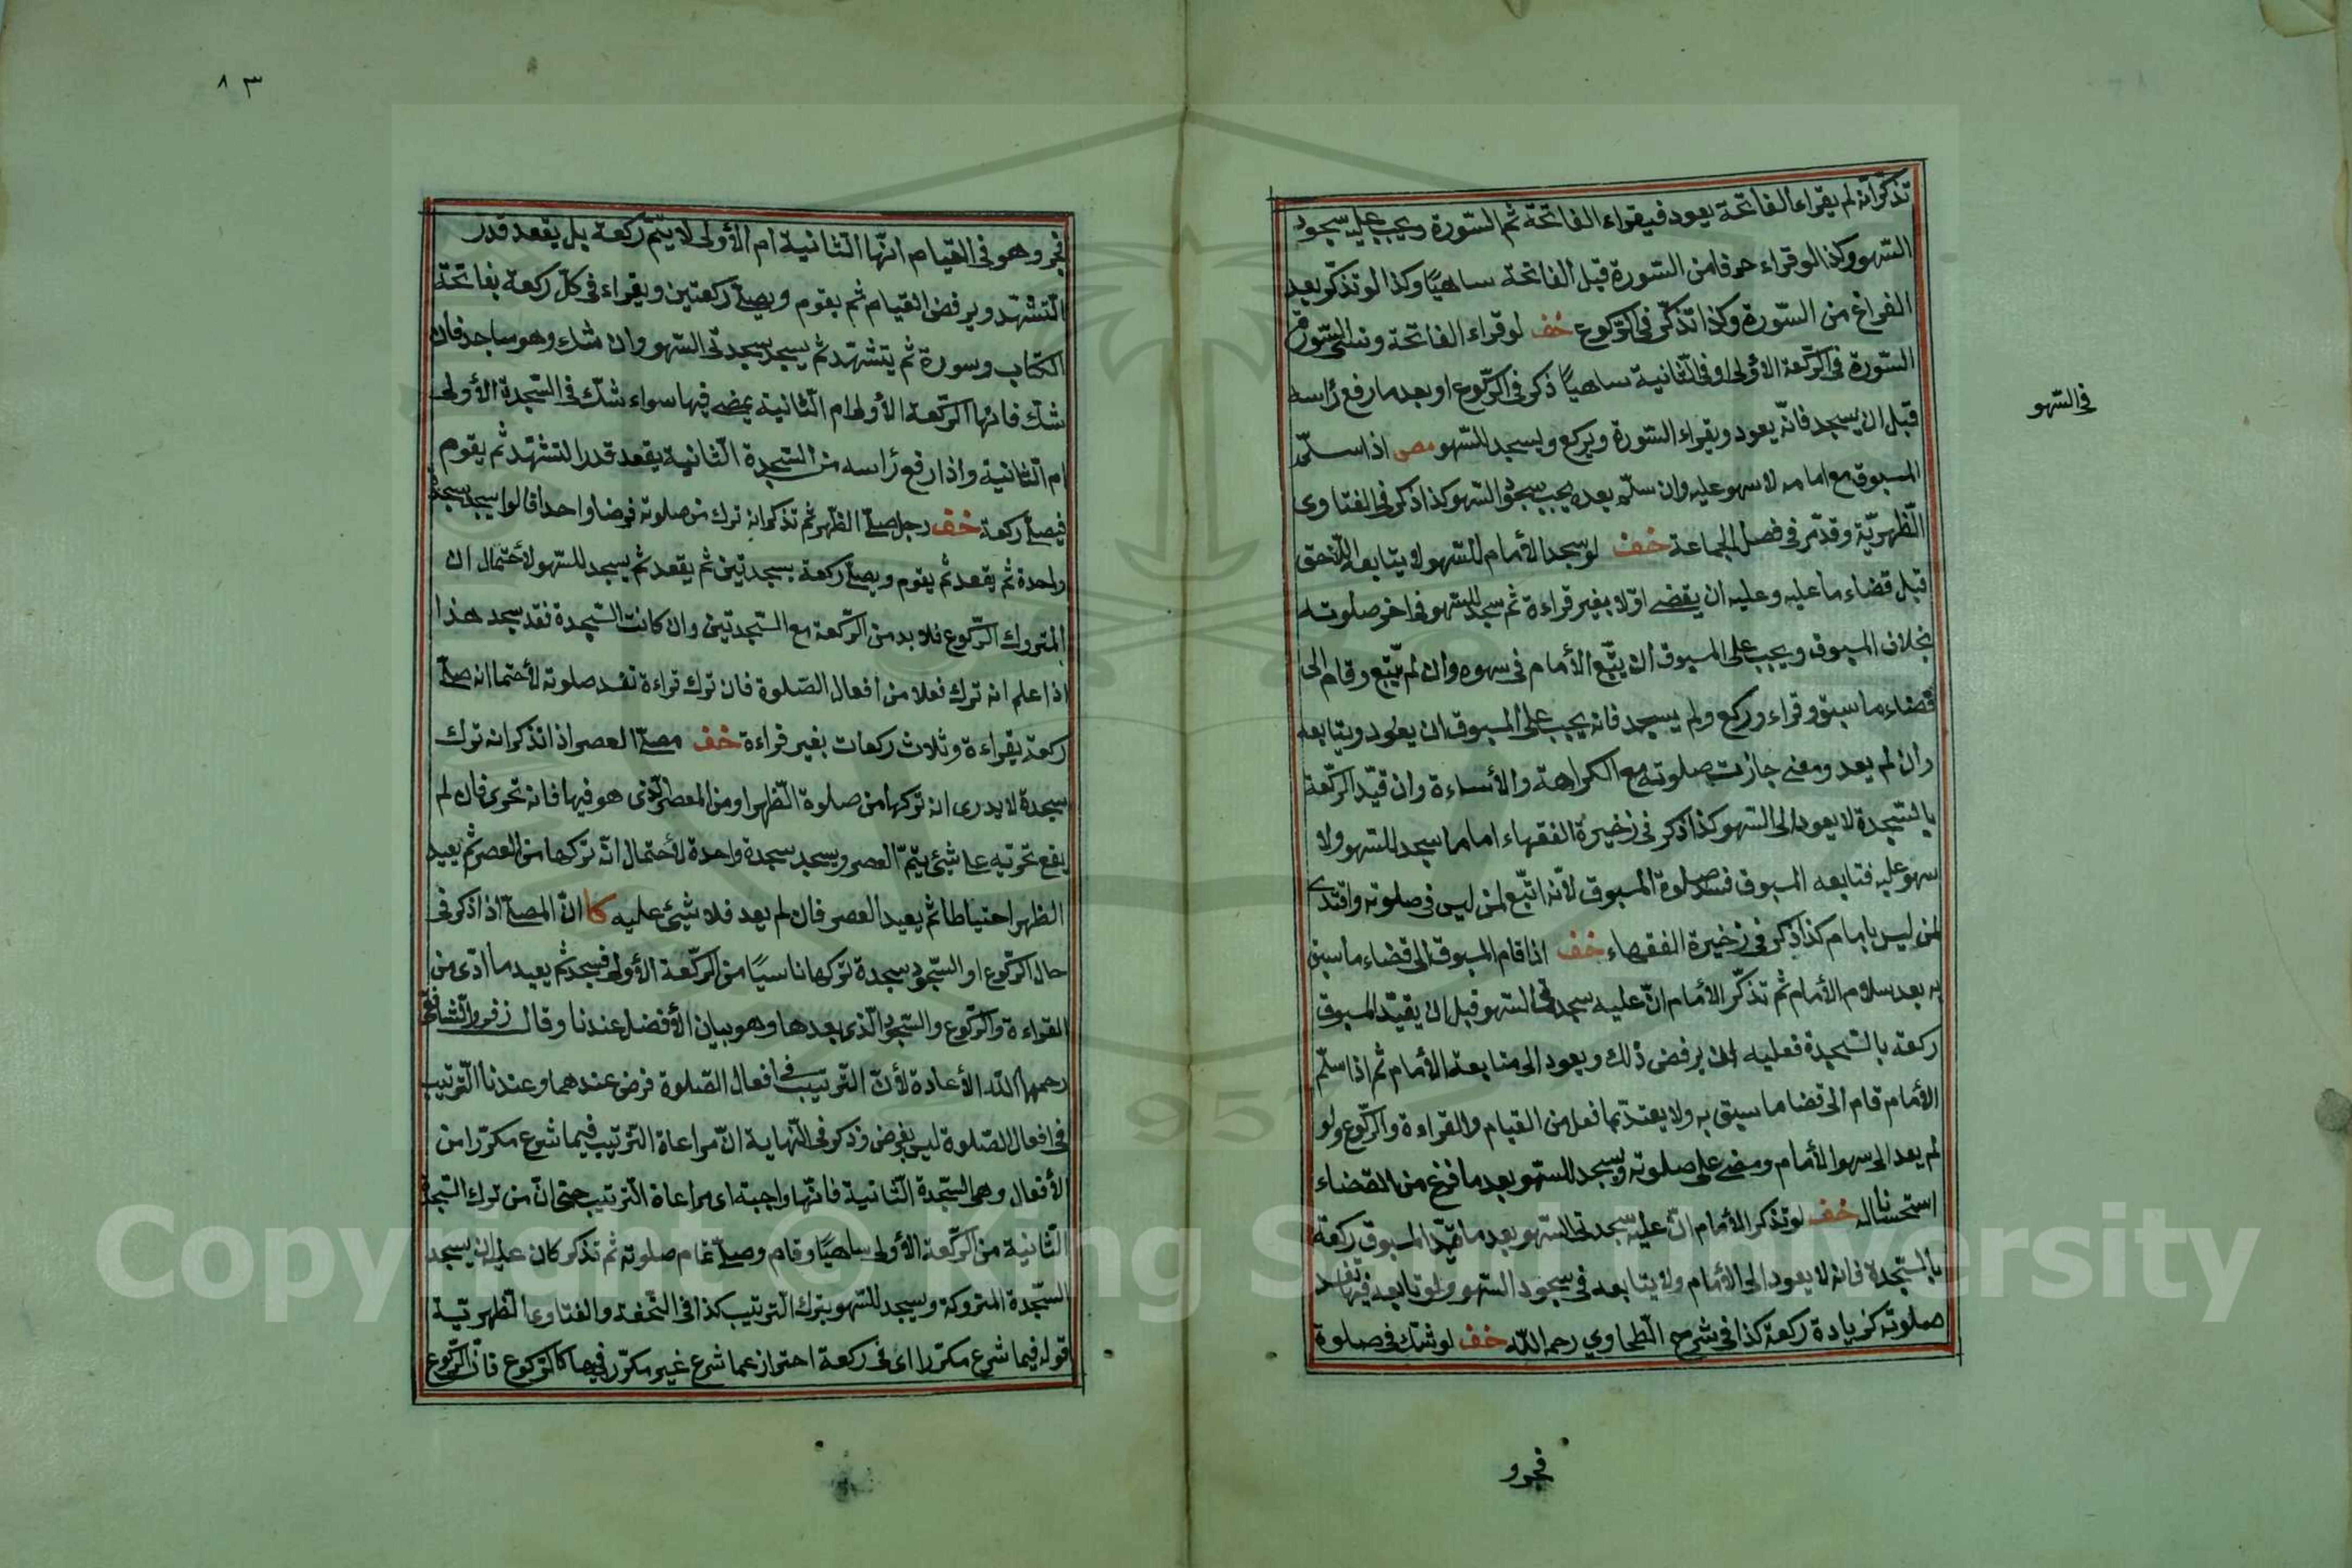 تذكر انه لم يقراء الفاتحة يعود فيقراء الفاتحة ثم السّورة ويجب عليه سجود
السّهو وكذا لو قراء حرفا من السّورة قبل الفاتحة ساهيًا وكذا لو تذكّر بعد
الفراغ من السّورة وكذا تذكّر فى الرّكوع خف لو قراء الفاتحة ونسى السّورة
السّورة فى الرّكعة الأولى او فى الثّانية ساهيًا ذكر فى الرّكوع او بعد ما رفع رأسه
قبل ان يسجد فانّه يعود ويقراء السّورة ويركع ويسجد للسّهو مص اذا سلّم
المسبوق مع امامه لا سهو عليه وان سلّم بعده يجب سجود السّهو كذا ذكر فى الفتاوى
الظّهيريّة وقد مّر فى فصل الجماعة خف لو سجد الأمام للسّهو لا يتابعه اللّاحق
قبل قضاء ما عليه وعليه ان يقضى اوّلا بغير قراءة ثم سجد للسّهو فى اخر صلوته
بخلاف المسبوق ويجب على المسبوق ان يتّبع الأمام فى سهوه وان لم يتّبع وقام الى
قضاء ما سبق وقراء وركع ولم يسجد فانه يجب على المسبوق ان يعود ويتابعه
وان لم يعد ومضى جازت صلوته مع الكراهة والأساءة وان قيّد الرّكعة
بالسّجدة لا يعود الى السّهو كذا ذكر فى زخيرة الفقهاء امام سجد للسّهو ولا
سهو عليه فتابعه المسبوق فسد صلوة المسبوق لأنّه اتّبع لمن ليس فى صلوته واقتدى
لمن ليس بامام كذا ذكر فى زخيرة الفقهاء خف اذا قام المسبوق الى قضاء ما سبق
به بعد سلام الأمام ثم تذكّر الأمام انّ عليه سجدتى السّهو قبل ان يقيّد المسبوق
ركعة بالسّجدة فعليه ان يرفض ذلك ويعود الى متابعة الأمام ثم اذا سلّم
الأمام قام الى قضا ما سبق به ولا يعتدّ بما فعل من القيام والقراءة والرّكوع ولو
لم يعد الى سهو الأمام ومضى على صلوته ويسجد للسّهو بعد ما فرغ من القضاء
استحسانا له خف لو تذكر الأمام انّ عليه سجدتى السّهو بعد ما قيّد المسبوق ركعة
بالسّجدة فانه لا يعود الى الأمام ولا يتابعه فى سجود السّهو ولو تابعه فيها تفسد
صلوته كزيادة ركعة كذا فى شرح الطّحاوى رحمه اللّه خف لو شك فى صلوة
فى السّهو
فجرو
٨٣
فجر وهو فى القيام انّها الثّانية ام الأولى لا يتمّ ركعة بل يقعد قدر
التّشهّد ويرفض القيام ثم يقوم ويصلّى ركعتين ويقراء فى كلّ ركعة بفاتحة
الكتاب وسورة ثم يتشهّد ثم يسجد سجدتى السّهو وان شك وهو ساجد فان
شكّ فانها الرّكعة الأولى ام الثّانية يمضى فيها سواء شكّ فى السّجدة الأولى
ام الثّانية واذا رفع رأسه من السّجدة الثّانية يقعد قدر التّشهّد ثم يقوم
فيصلّى ركعة خف رجل صلّى الظّهر ثم تذكر انه ترك من صلوته فرضا واحدا قالوا يسجد سجدة
واحدة ثم يقعد ثم يقوم ويصلّى ركعة بسجدتين ثم يقعد ثم يسجد للسّهو لأحتمال ان
المتروك الرّكوع فلا بد من الرّكعة مع السّجدتين وان كانت السّجدة فقد سجد هذا
اذا علم انه ترك فعلا من افعال الصّلوة فان ترك قراءة تفسد صلوته لأحتما انه صلّى
ركعة بقراءة وثلاث ركعات بغير قراءة خف مصلّى العصر اذا تذكر انه ترك
سجدة لا يدرى انه تركها من صلوة الظّهر او من العصر الّذى هو فيها فانه تحرى فان لم
يقع تحريه على شيئ يتمّ العصر ويسجد سجدة واحدة لأحتمال انّه تركها من العصر ثم يعيد
الظهر احتياطا ثم يعيد العصر فان لم يعد فلا شيئ عليه كا انّ المصلّى اذا ذكر فى
حال الرّكوع او السّجود سجدة تركها ناسيًا من الرّكعة الأولى فسجد ثم يعيد ما ادّى من
القراءة والرّكوع والسّجود الّذى بعدها وهو بيان الأفضل عندنا وقال زفر والشافعى
رحمهما اللّه الأعادة لأنّ التّرتيب فى افعال الصّلوة فرض عندهما وعندنا التّرتيب
فى افعال الصّلوة ليس بفرض وذكر فى النّهاية انّ مراعاة التّرتيب فيما شرع مكرّرا من
الأفعال وهى السّجدة الثّانية فانّها واجبة اى مراعاة التّرتيب حتى انّ من ترك السّجدة
الثّانية من الرّكعة الأولى ساهيًا وقام وصلّى تمام صلوته ثم تذكر كان عليه ان يسجد
السّجدة المتروكة ويسجد للسّهو بترك التّرتيب كذا فى التّحفة والفتاوى الظهيريّة
قوله فيما شرع مكرّرا اى فى ركعة احتراز عما شرع غير مكرّر فيها كالرّكوع فانّ الرّكوع
Copyright © King Saud University
1957